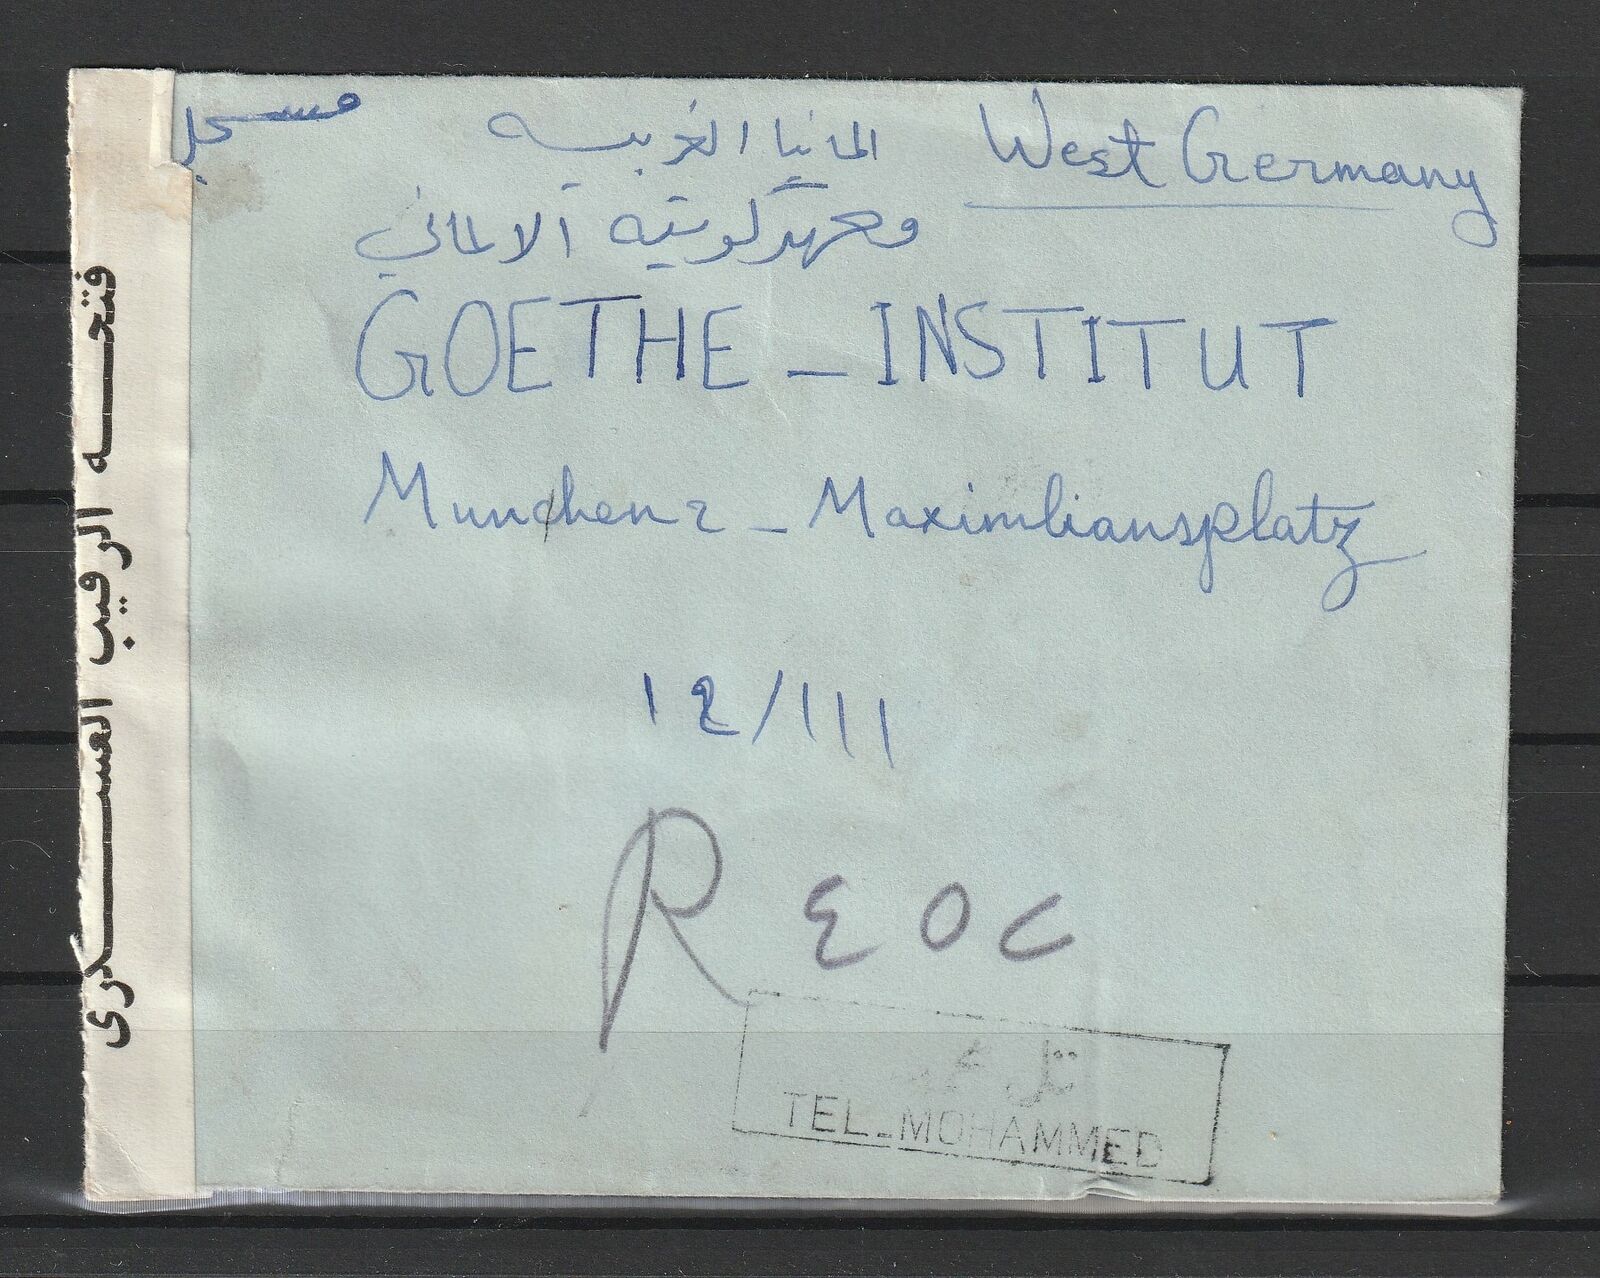 مسجل
المانيا الغربيه West Germany
معهد كويته الالماني
GOETHE_INSTITUT
Munchen 2 _ Maximliansplatz
١٤/١١١
R ٤٥٢
تل
TEL_MOHAMMED
فتحه الرقيب العسكرى